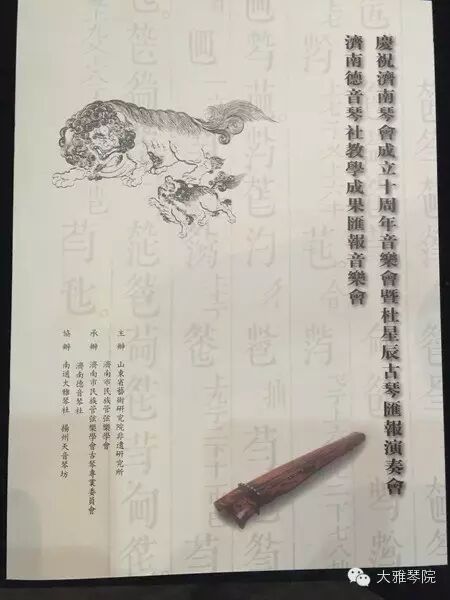 慶祝濟南琴會成立十周年音樂會暨杜星辰古琴匯報演奏會
濟南德音琴社教學成果匯報音樂會
主辦 山東省藝術研究院非遺研究所
濟南市民族管弦樂學會
承辦 濟南市民族管弦樂學會古琴專業委員會
濟南德音琴社
協辦 南通大雅琴社 揚州天音琴坊
大雅琴院